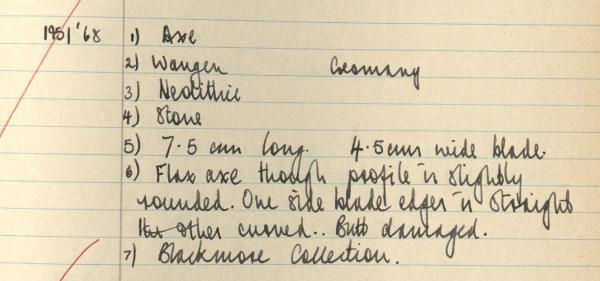 1951'68 1) Axe
2) Wangen Germany
3) Neolithic
4) Stone
5) 7.5 cm long. 4.5cms wide blade.
6) Flax axe though profile is slightly
rounded. One side blade edges is straight
other curved.. Butt damaged.
7) Blackmore Collection.